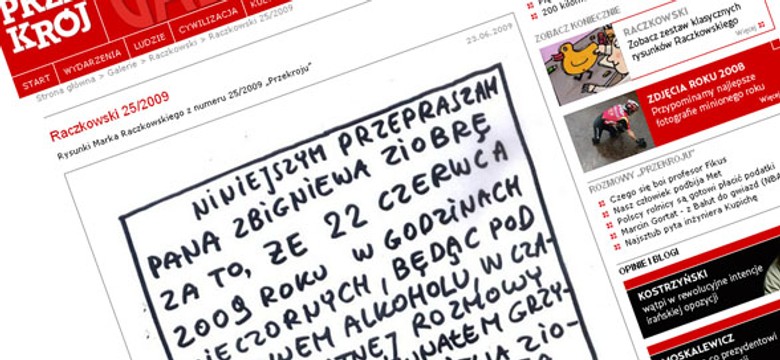 PRZE
KRÓJ
START | WYDARZENIA | LUDZIE | CYWILIZACJA
Strona główna > Galerie > Raczkowski > Raczkowski 25/2009
Raczkowski 25/2009
23.06.2009
Rysunki Marka Raczkowskiego z numeru 25/2009 „Przekroju"
NINIEJSZYM PRZEPRASZAM
PANA ZBIGNIEWA ZIOBRĘ
ZA TO, ŻE 22 CZERWCA
2009 ROKU W GODZINACH
WIECZORNYCH, BĘDĄC POD
WEM ALKOHOLU, W CZA-
NEJ ROZMOWY
NAŁEM GRZY-
ZIO-
200 kilom
ZOBACZ KONIECZNIE
RACZKOWSKI
Zobacz zestaw klasycznych
rysunków Raczkowskiego
Więcej
ZDJĘCIA ROKU 2008
Przypominamy najlepsze
fotografie minionego roku
Więcej
ROZMOWY „PRZEKROJU"
Czego się boi profesor Fikus
Nasz człowiek podbija Met
Polscy rolnicy są gotowi płacić podatki
Marcin Gortat - z Bałut do gwiazd (NBA
Najsztub pyta inżyniera Kupichę
OPINIE I BLOGI
KOSTRZYŃSKI
wątpi w rewolucyjne intencje
irańskiej opozycji
MOSKALEWICZ
o prezydentowi